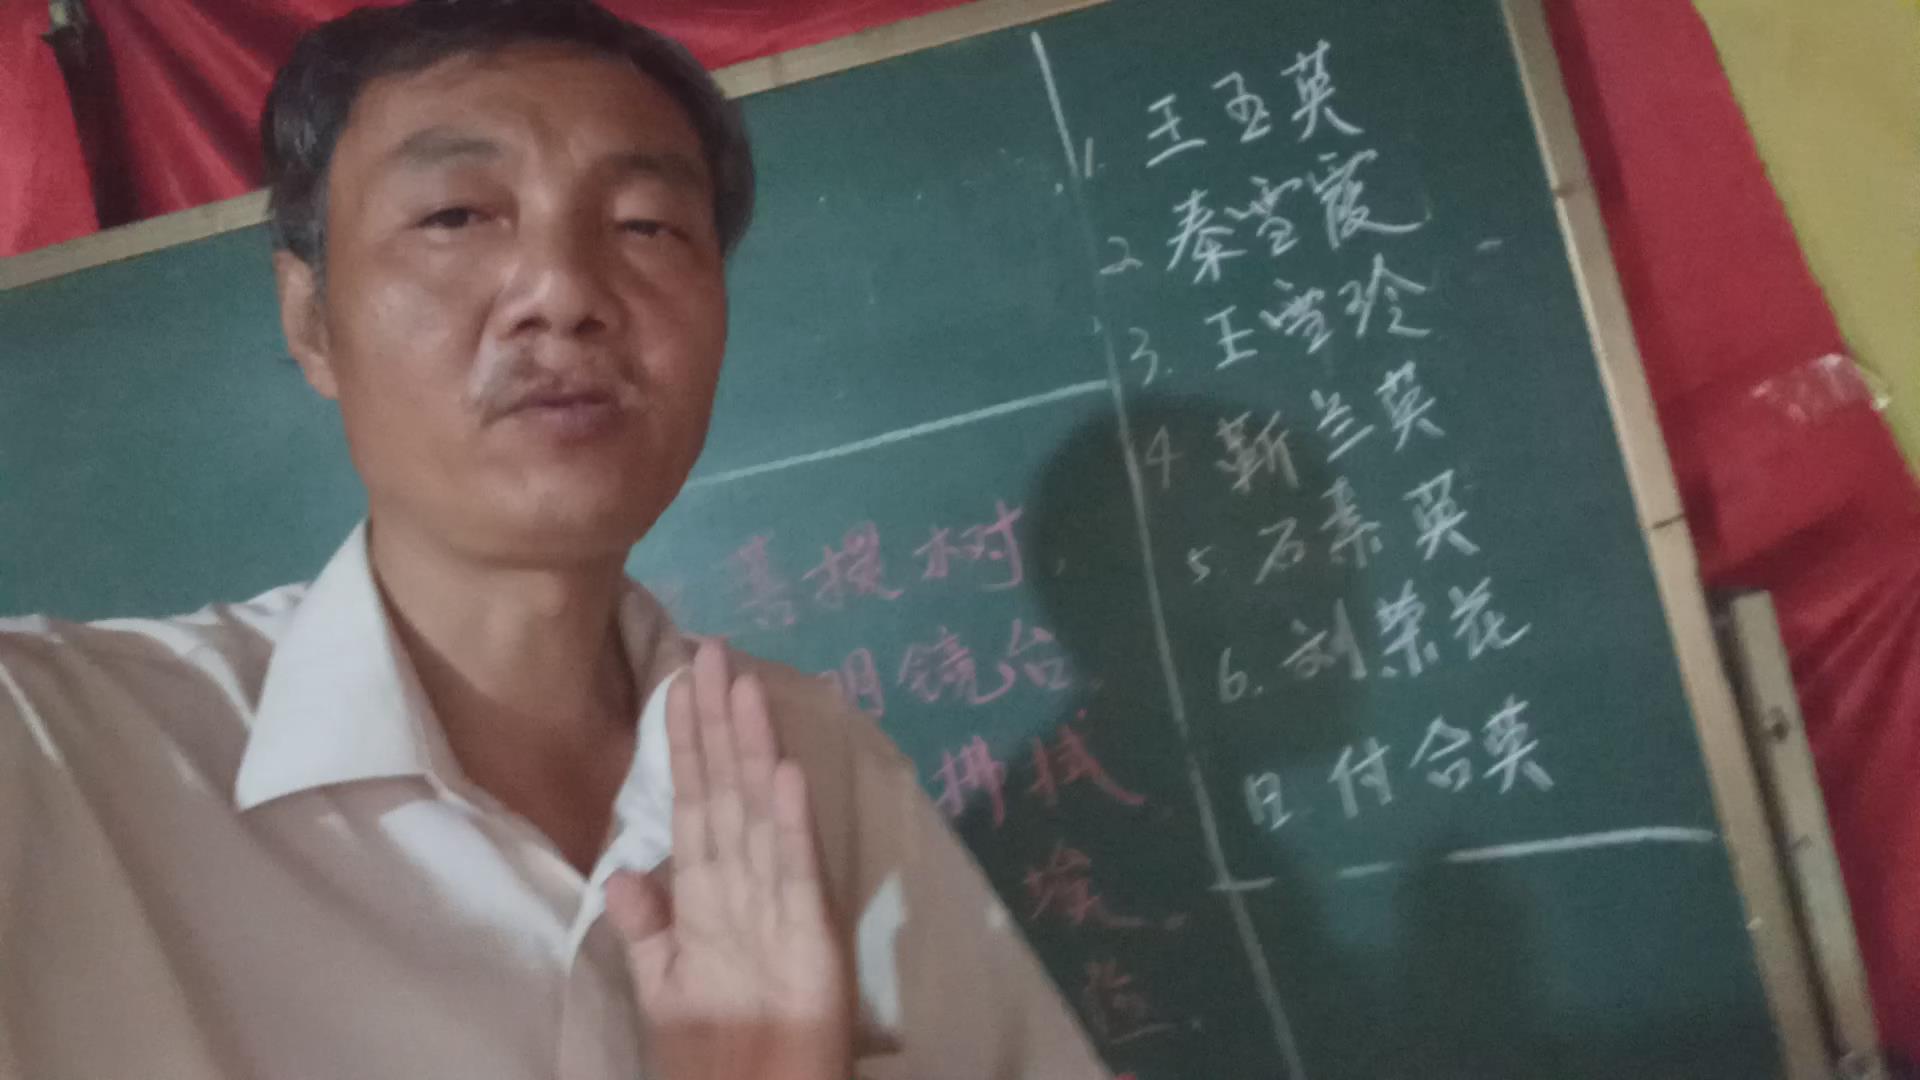 菩提树.
明镜台.
拂拭
埃.
1. 王玉英
2 秦雪霞
3. 王雪玲
4 靳兰英
5. 石素英
6. 刘荣花
日. 付合英